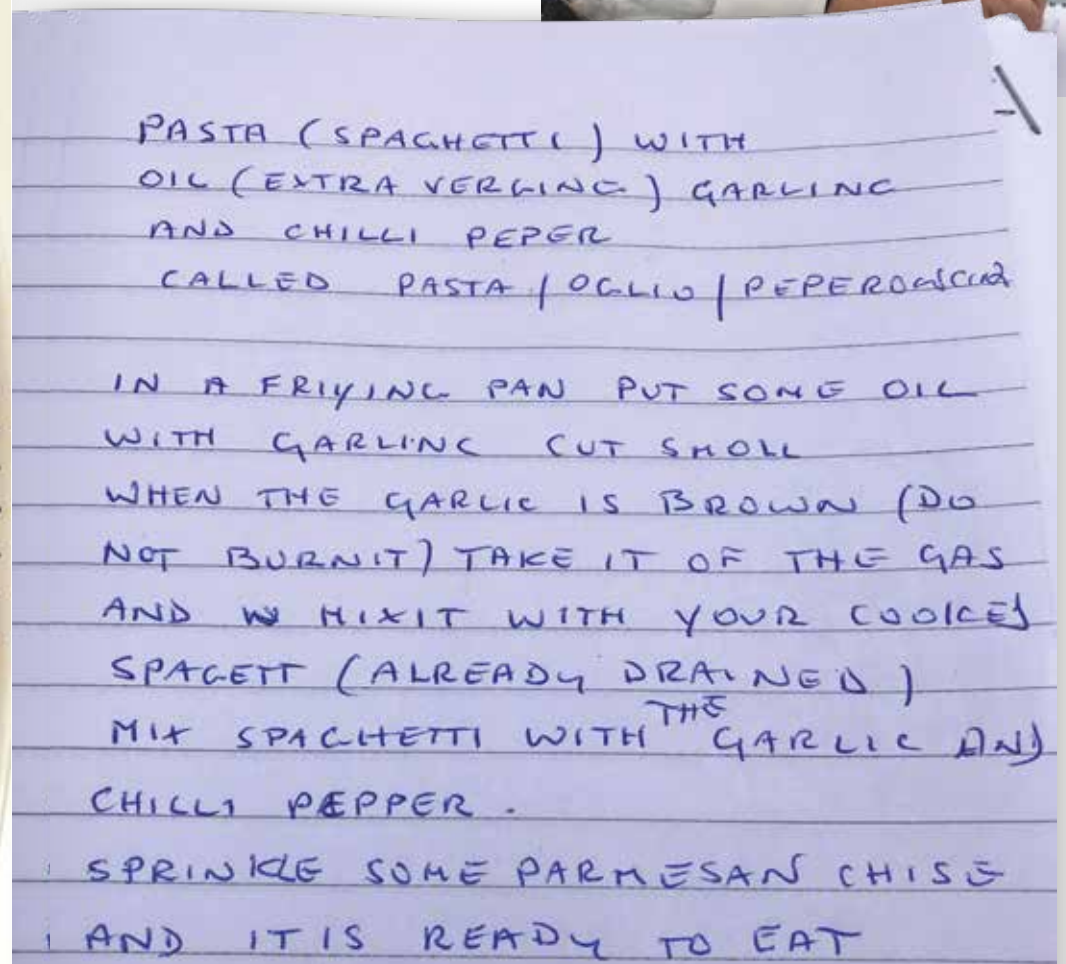 PASTA (SPAGHETTI) WITH
OIL (EXTRA VERGING) GARLINC
AND CHILLI PEPER
CALLED PASTA / OGLIO / PEPERONCINO
IN A FRIYING PAN PUT SOME OIL
WITH GARLINC CUT SMOLL
WHEN THE GARLIC IS BROWN (DO
NOT BURNIT) TAKE IT OF THE GAS
AND MIXIT WITH YOUR COOKED
SPAGETT (ALREADY DRAINED)
MIX SPAGHETTI WITH THE GARLIC AND
CHILLI PEPPER.
SPRINKLE SOME PARMESAN CHISE
AND IT IS READY TO EAT